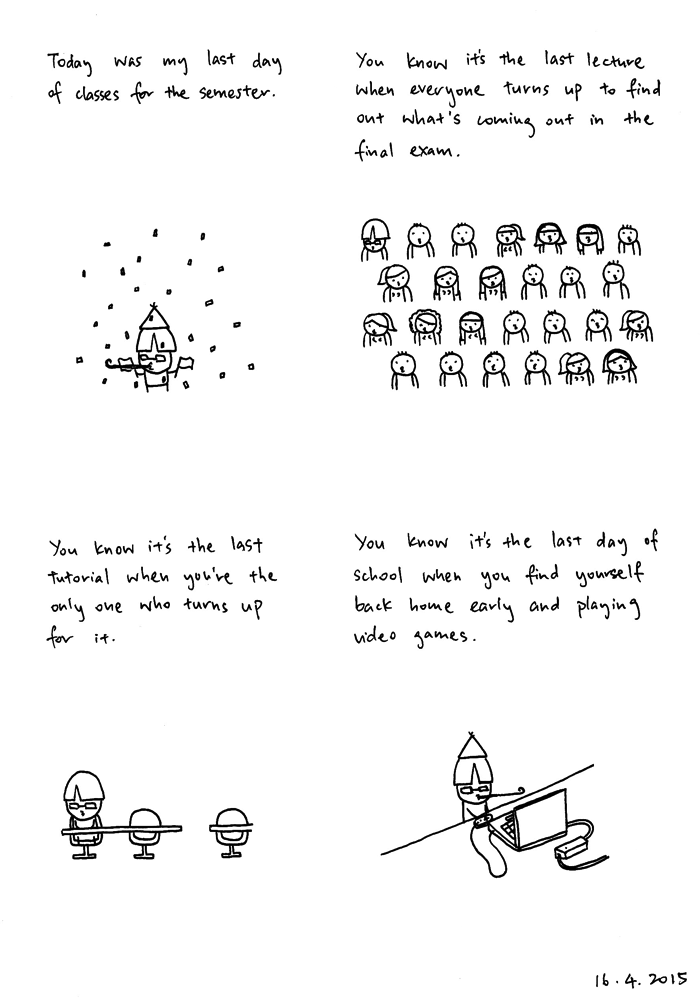 Today was my last day
of classes for the semester.
You know it's the last lecture
when everyone turns up to find
out what's coming out in the
final exam.
You know it's the last
tutorial when you're the
only one who turns up
for it.
You know it's the last day of
school when you find yourself
back home early and playing
video games.
16.4.2015